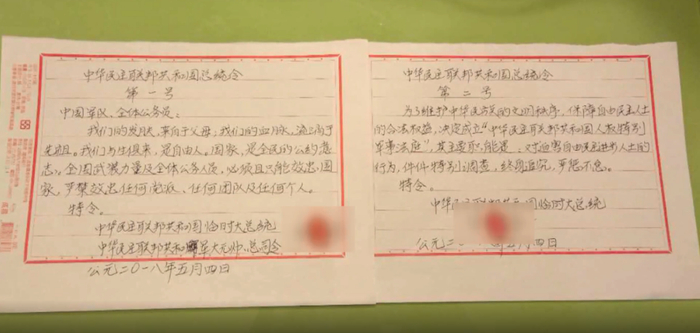 中华民主联邦共和国总统令
第一号
中国军队、全体公务员:
我们的发肤,来自于父母,我们的血脉,流之于
先祖。我们与生俱来,是自由人。国家,是全民的公约意
志。全国武装力量及全体公务人员,必须且只能效忠:国
家。严禁效忠任何党派、任何团队及任何个人。
特令。
中华民主联邦共和国临时大总统
中华民主联邦共和 军大元帅、总司令
公元二〇一八年五月四日
中华民主联邦共和国总统令
第二号
为了维护中华民族的文明秩序,保障自由民主人士
的合法权益,决定成立“中华民主联邦共和国人权特别
军事法庭”,其主要职能是:对迫害自由民主进步人士的
行为,件件特别调查,终身追究,严惩不怠。
特令。
中华民主联邦共 国临时大总统
公元二〇一 四日